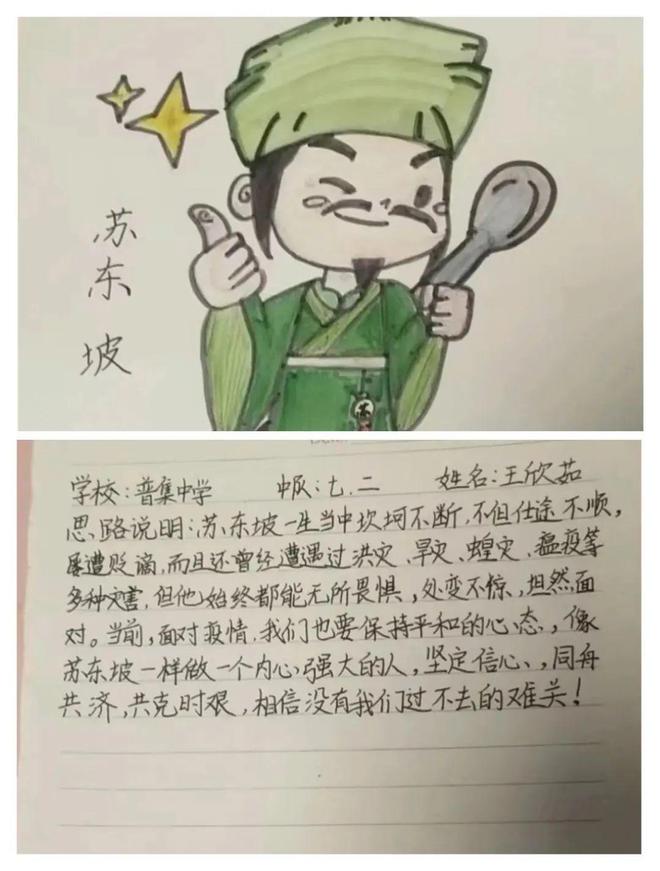 苏
东
坡
苏
学校：普集中学 中队：七.二 姓名：王欣茹
思路说明：苏东坡一生当中坎坷不断，不但仕途不顺，
屡遭贬谪，而且还曾经遭遇过洪灾、旱灾、蝗灾、瘟疫等
多种灾害，但他始终都能无所畏惧，处变不惊，坦然面
对。当前，面对疫情，我们也要保持平和的心态，像
苏东坡一样做一个内心强大的人，坚定信心，同舟
共济，共克时艰，相信没有我们过不去的难关！